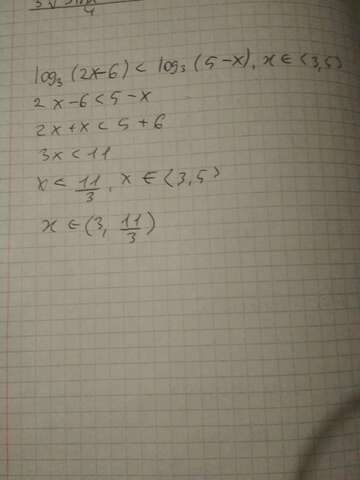 4
log₃(2x-6) < log₃(5-x), x ∈ (3,5)
2x-6<5-x
2x+x<5+6
3x<11
x < 11/3, x ∈ (3,5)
x ∈ (3, 11/3)